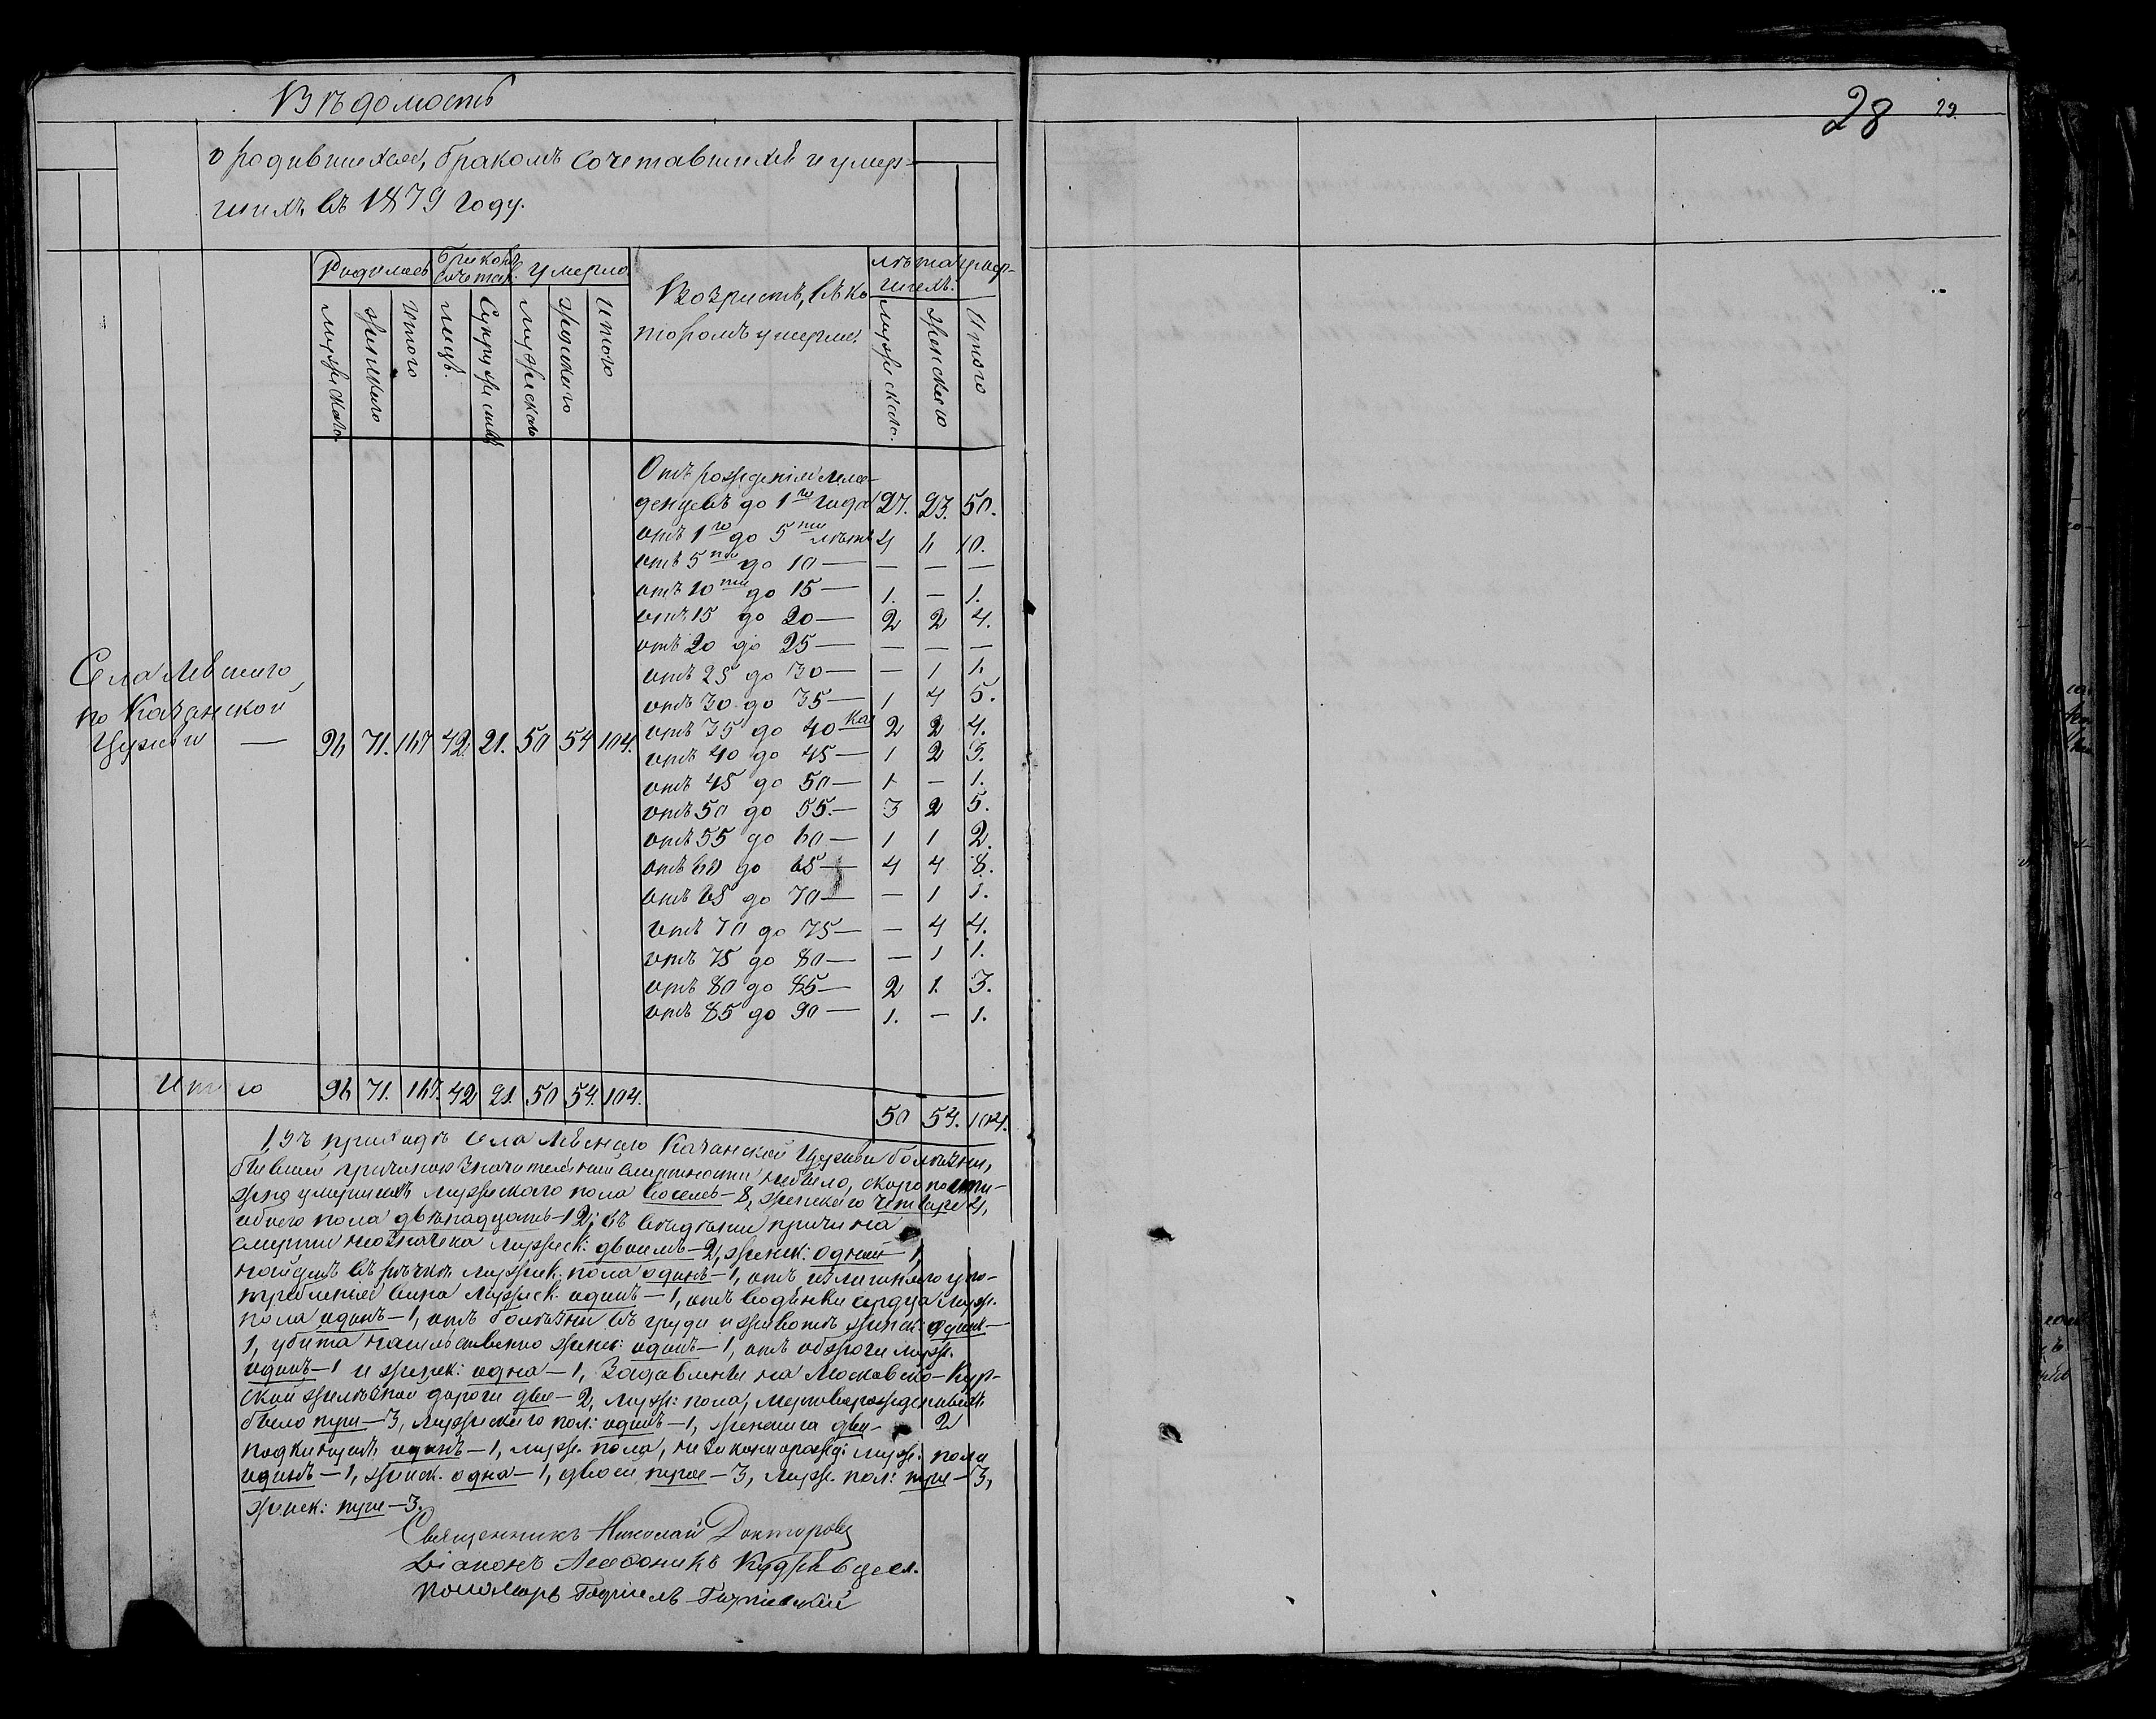 Вѣдомость
28 29.
о родившихся, бракомъ сочетавшихся и умер-
шихъ въ 1879 году.
Родилось
Бракомъ сочетал.
Умерло
Возрастъ, въ ко-
торомъ умерли.
лѣта умер-
шихъ.
Мужескаго.
Женскаго
Итого
лицъ.
Супружествъ
Мужескаго
Женскаго
Итого
Мужескаго.
Женскаго
Итого
Отъ рожденія мла-
денцевъ до 1го года 27. 23. 50.
отъ 1го до 5ти лѣтъ 4 6 10.
отъ 5ти до 10 — — — —
отъ 10ти до 15 — 1. — 1.
отъ 15 до 20 — 2 2 4.
отъ 20 до 25 — — — —
отъ 25 до 30 — — 1 1.
отъ 30 до 35 — 1 4 5.
отъ 35 до 40ка 2 2 4.
отъ 40 до 45 — 1 2 3.
отъ 45 до 50 — 1 — 1.
отъ 50 до 55. — 3 2 5.
отъ 55 до 60 — 1 1 2.
отъ 60 до 65 — 4 4 8.
отъ 65 до 70 — — 1 1.
отъ 70 до 75 — — 4 4.
отъ 75 до 80 — — 1 1.
отъ 80 до 85 — 2 1. 3.
отъ 85 до 90 — 1. — 1.
Села
по Казанской
Церкви — 96 71. 167 42. 21. 50 54 104.
Итого 96 71. 167. 42 21. 50 54. 104.
50 54. 104.
приходѣ села Казанской Церкви болѣзни,
бывшей причиною значительной смертности небыло, скоропости-
жно умершихъ мужескаго пола восемь — 8, женскаго четыре 4,
обоего пола двѣнадцать — 12; причина
смерти неозначена мужеск: двоимъ — 2, женск: одной 1,
мужеск. пола одинъ — 1, отъ излишняго упо-
требленія вина мужеск. одинъ — 1, отъ водянки сердца муж.
пола одинъ — 1, отъ болѣзни въ груди и животѣ женск:
1, убита насильственно женск: — 1, отъ обжоги муж.
одинъ — 1 и женск: одна — 1, задавлены на Московско-Кур-
ской желѣзной дороги два — 2, муж: пола, мертворожденныхъ
было три — 3, мужескаго пол: одинъ — 1, женскаго два — 2
одинъ — 1, муж. пола, незаконорожд: муж: пола
одинъ — 1, женск. одна — 1, двоен трое — 3, муж. пол: три — 3,
женск: три — 3.
Священникъ Николай Докторовъ
Діаконъ
Пономарь Гавріилъ